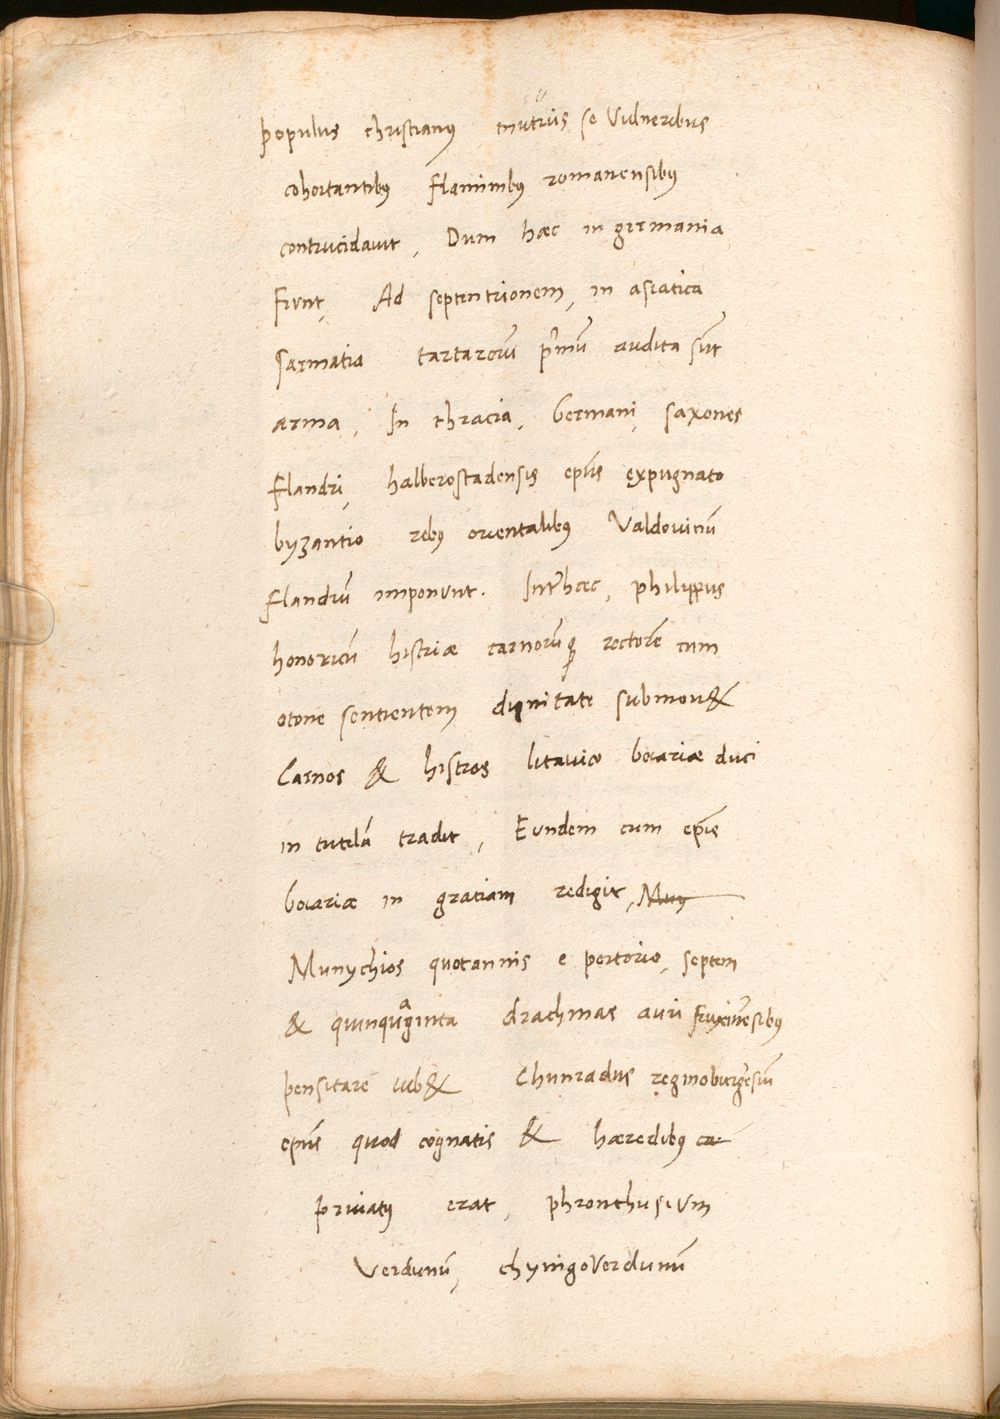 populus christianus mutuis se Vulneribus
cohortantibus flaminibus romanensibus
contrucidavit, Dum hæc in germania
fiunt, Ad septentrionem, in asiatica
sarmatia tartarorũ p'mũ audita sũt
arma, In thracia, Germani, saxones
flandri, halberostadensis ep̃us expugnato
byzantio rebus orientalibus Valdovinũ
flandrũ imponunt. Int'hæc, philippus
honoricũ histriæ carnorũq; rectorẽ cum
otone sentientem dignitate submov&
Carnos & histros litavico boiariæ duci
in tutelã tradit, Eundem cum ep̃is
boiariæ in gratiam redigit, Muy
Munychios quotannis e portorio, septem
& quinquaginta drachmas auri fruxinẽsibus
pensitare iub& Chunradus reginoburgẽsiũ
ep̃us quod cognatis & hæredibus
privatus erat, phronthusium
Verdunũ, chyingoverdunũ